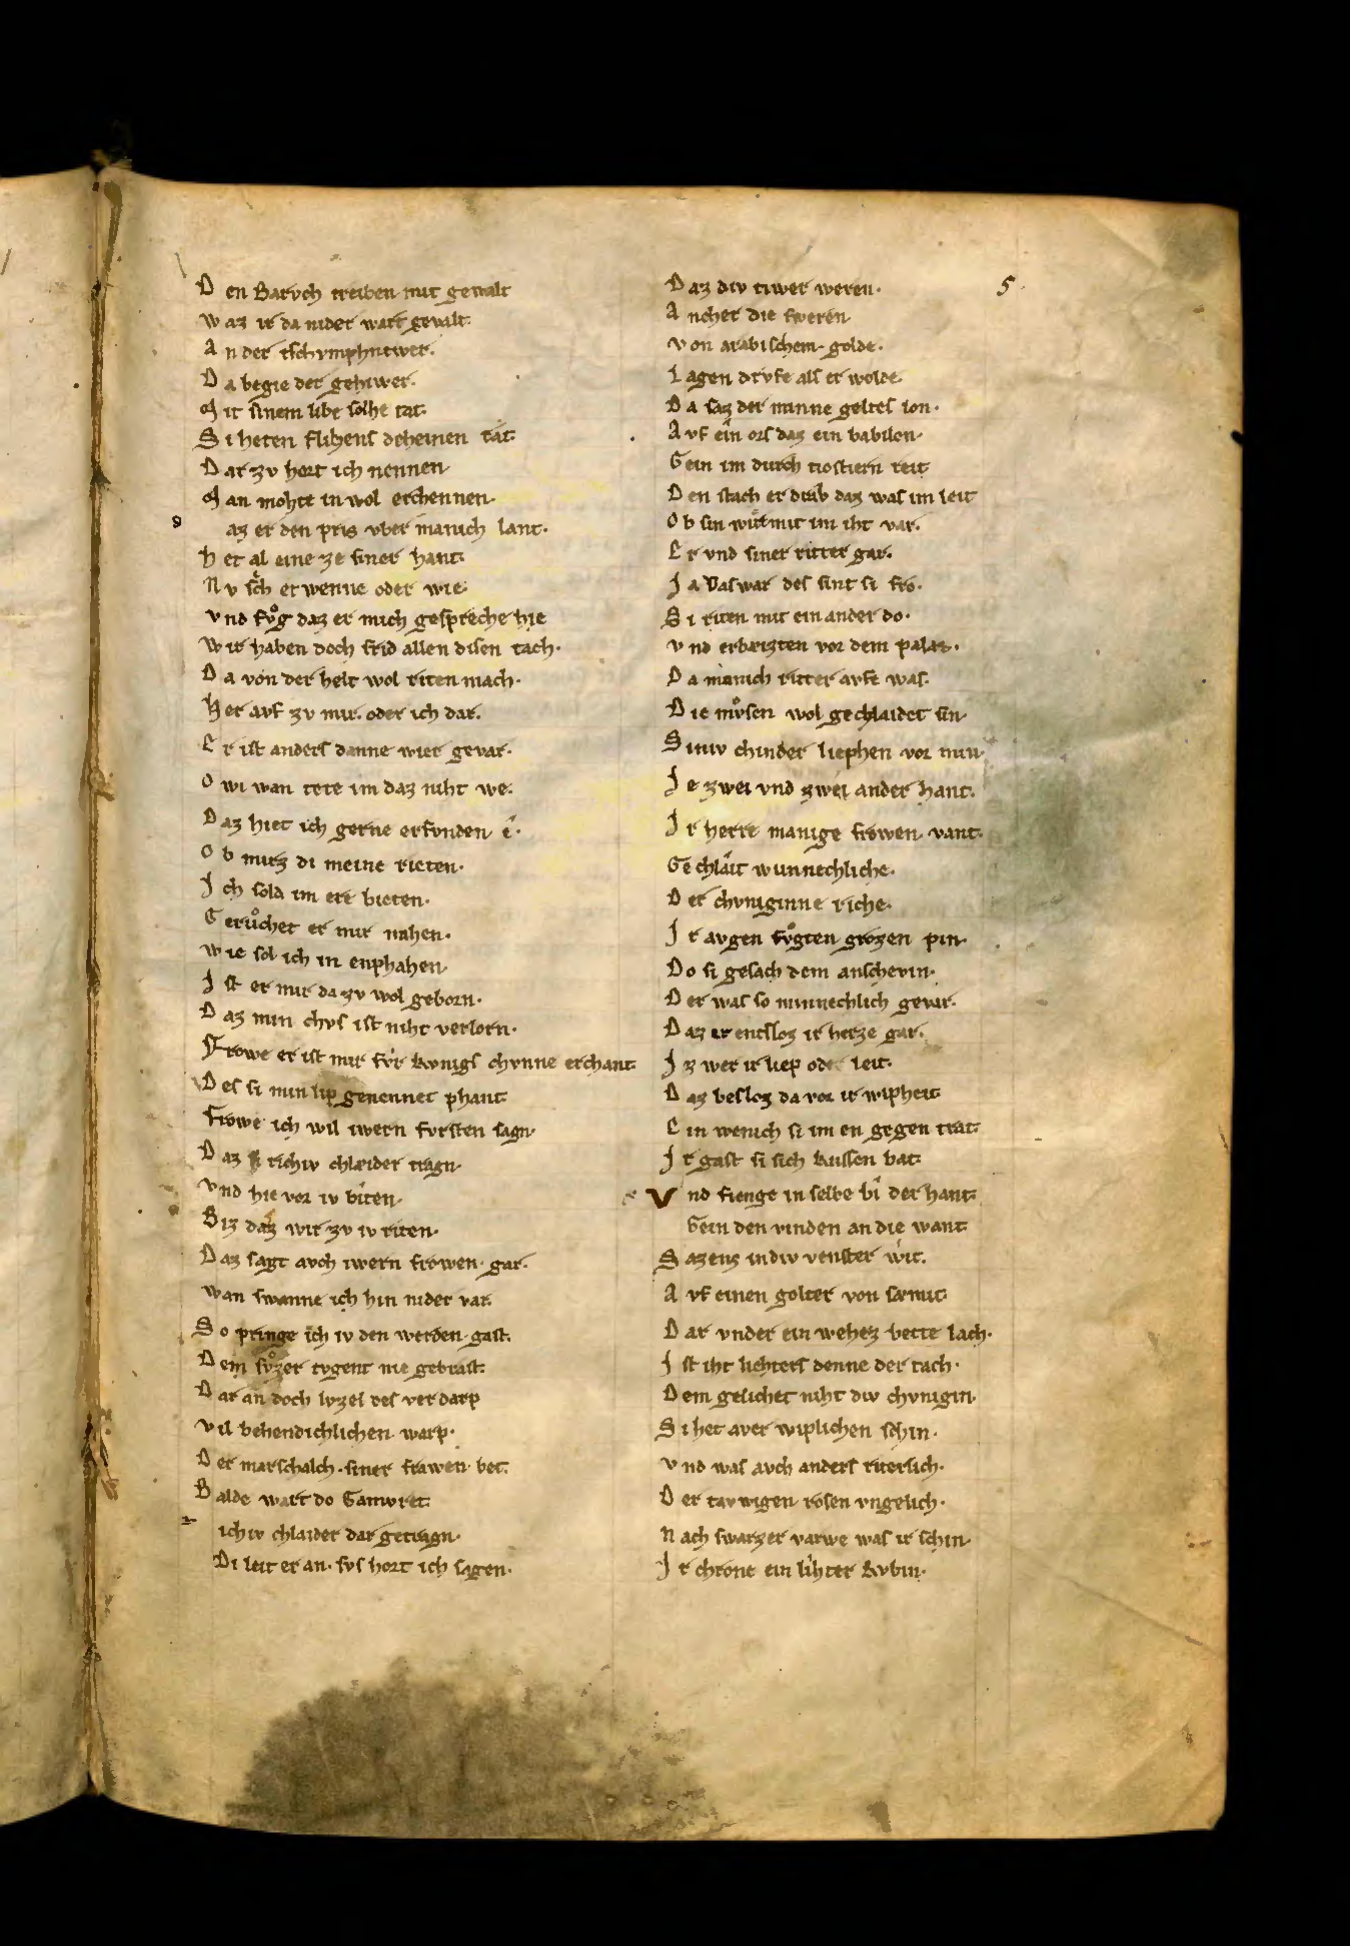 D en Barvch treiben mit gewalt
W az ir da nider wart gevalt.
A n der tschvmphntwer.
D a begie der gehiwer.
M it sinem libe solhe tat.
S i heten flihens deheinen rat.
D ar zv hort ich nennen
M an mohte in wol erchennen.
az er den pris vber manich lant.
H et al eine ze siner hant.
N v sch er wenne oder wie.
vnd fvͦg daz er mich gespreche hie
W ir haben doch frid allen disen tach.
D a von der helt wol riten mach.
H er avf zv mir. oder ich dar.
E r ist anders danne wier gevar.
O wi wan tete im daz niht we.
D az hiet ich gerne erfvnden ê.
O b mirz di meine rieten.
J ch sold im ere bieten.
G erůchet er mir nahen.
W ie sol ich in enphahen.
J st er mir da zv wol geborn.
D az min chvs ist niht verlorn.
Frowe er ist mir fvr kvnigs chvnne erchant
D es si min lip genennet phant
Frowe ich wil iwern fvrsten sagn.
D az richiv chlæider tragn.
V nd hie vor iv biten.
B iz daz wir zv iv riten.
D az sagt avch iwern frowen. gar.
wan swanne ich hin nider var.
S o pringe ich iv den werden. gast.
D em svͦzer tvgent nie gebrast.
D ar an doch lvzel des verdarp
vil behendichlichen. warp.
D er marschalch. siner frawen. bet.
B alde wart do Gamvret.
ichiv chlaider dar getragn.
Di leit er an. svs hort ich sagen.
D az div tiwer weren.
A ncher die sweren
v on arabischem. golde.
L agen drvfe als er wolde.
D a saz der minne geltes lon.
A vf ein ors daz ein babilon.
G ein im durch tiostiern reit
D en stach er drab daz was im leit
O b sin wirt mit im iht var.
E r vnd siner ritter gar.
J a vaswar des sint si fro.
S i riten mit ein ander do.
v nd erbeizten vor dem palas.
D a manich ritter avfe was.
D ie mvͦsen wol gechlaidet sin.
S iniv chinder liephen vor min
J e zwei vnd zwei ander hant.
J r herre manige frowen. vant.
Ge chlait wunnechliche.
D er chvniginne riche.
J r avgen fvͦgten grozen pin.
D o si gesach dem anschevin.
D er was so minnechlich gevar.
D az er entsloz ir herze gar.
J z wer ir liep oder leit.
D az besloz da vor ir wipheit
E in wenich si im en gegen trat.
J r gast si sich kussen bat.
V nd fienge in selbe bî der hant.
Gein den vinden an die want
S azens in div venster wit.
A vf einen golter von samit.
D ar vnder ein wehez bette lach.
J st iht liehters denne der tach.
D em gelichet niht div chvnigin.
S i het aver wiplichen schin.
v nd was avch anders riterlich.
D er tavwigen rosen vngelich.
N ach swarzer varwe was ir schin.
J r chrone ein lihter kvbin.
5